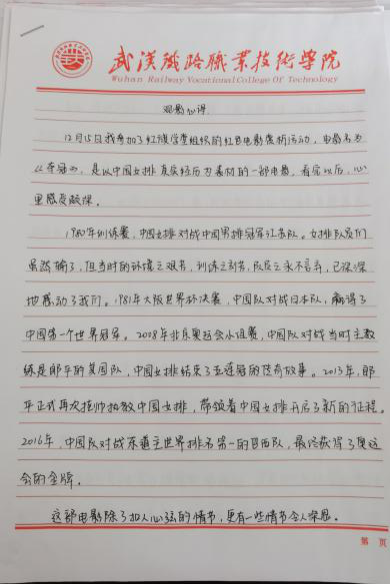 武漢鐵路職業技術學院
Wuhan Railway Vocational College Of Technology
观影心得
12月15日我参加了红旗学堂组织的红色电影赏析活动,电影名为
《夺冠》,是以中国女排真实经历为素材的一部电影,看完以后,心
里感受颇深。
1980年训练赛,中国女排对战中国男排冠军江苏队。女排队员们
虽然输了,但当时的环境之艰苦,训练之刻苦,队员之永不言弃,已深深
地感动了我们。1981年大阪世界杯决赛,中国队对战日本队,赢得了
中国第一个世界冠军。2008年北京奥运会小组赛,中国队对战当时主教
练是郎平的美国队,中国女排结束了五连冠的传奇故事。2013年,郎
平正式再次挂帅执教中国女排,带领着中国女排开启了新的征程。
2016年,中国队对战东道主世界排名第一的巴西队,最终获得了奥运
会的金牌。
这部电影除了扣人心弦的情节,更有一些情节令人深思。
第 页